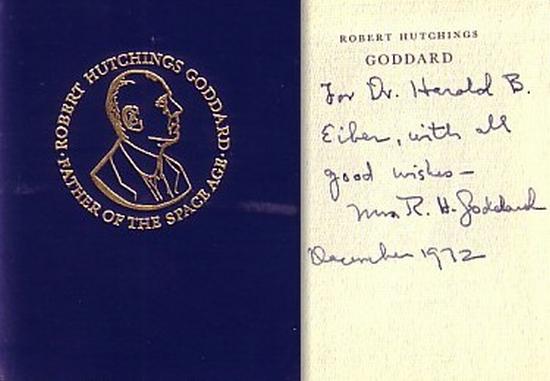 · ROBERT HUTCHINGS GODDARD ·
FATHER OF THE SPACE AGE
ROBERT HUTCHINGS
GODDARD
For Dr. Harold B.
Eiben, with all
good wishes—
Mrs R. H. Goddard
December 1972